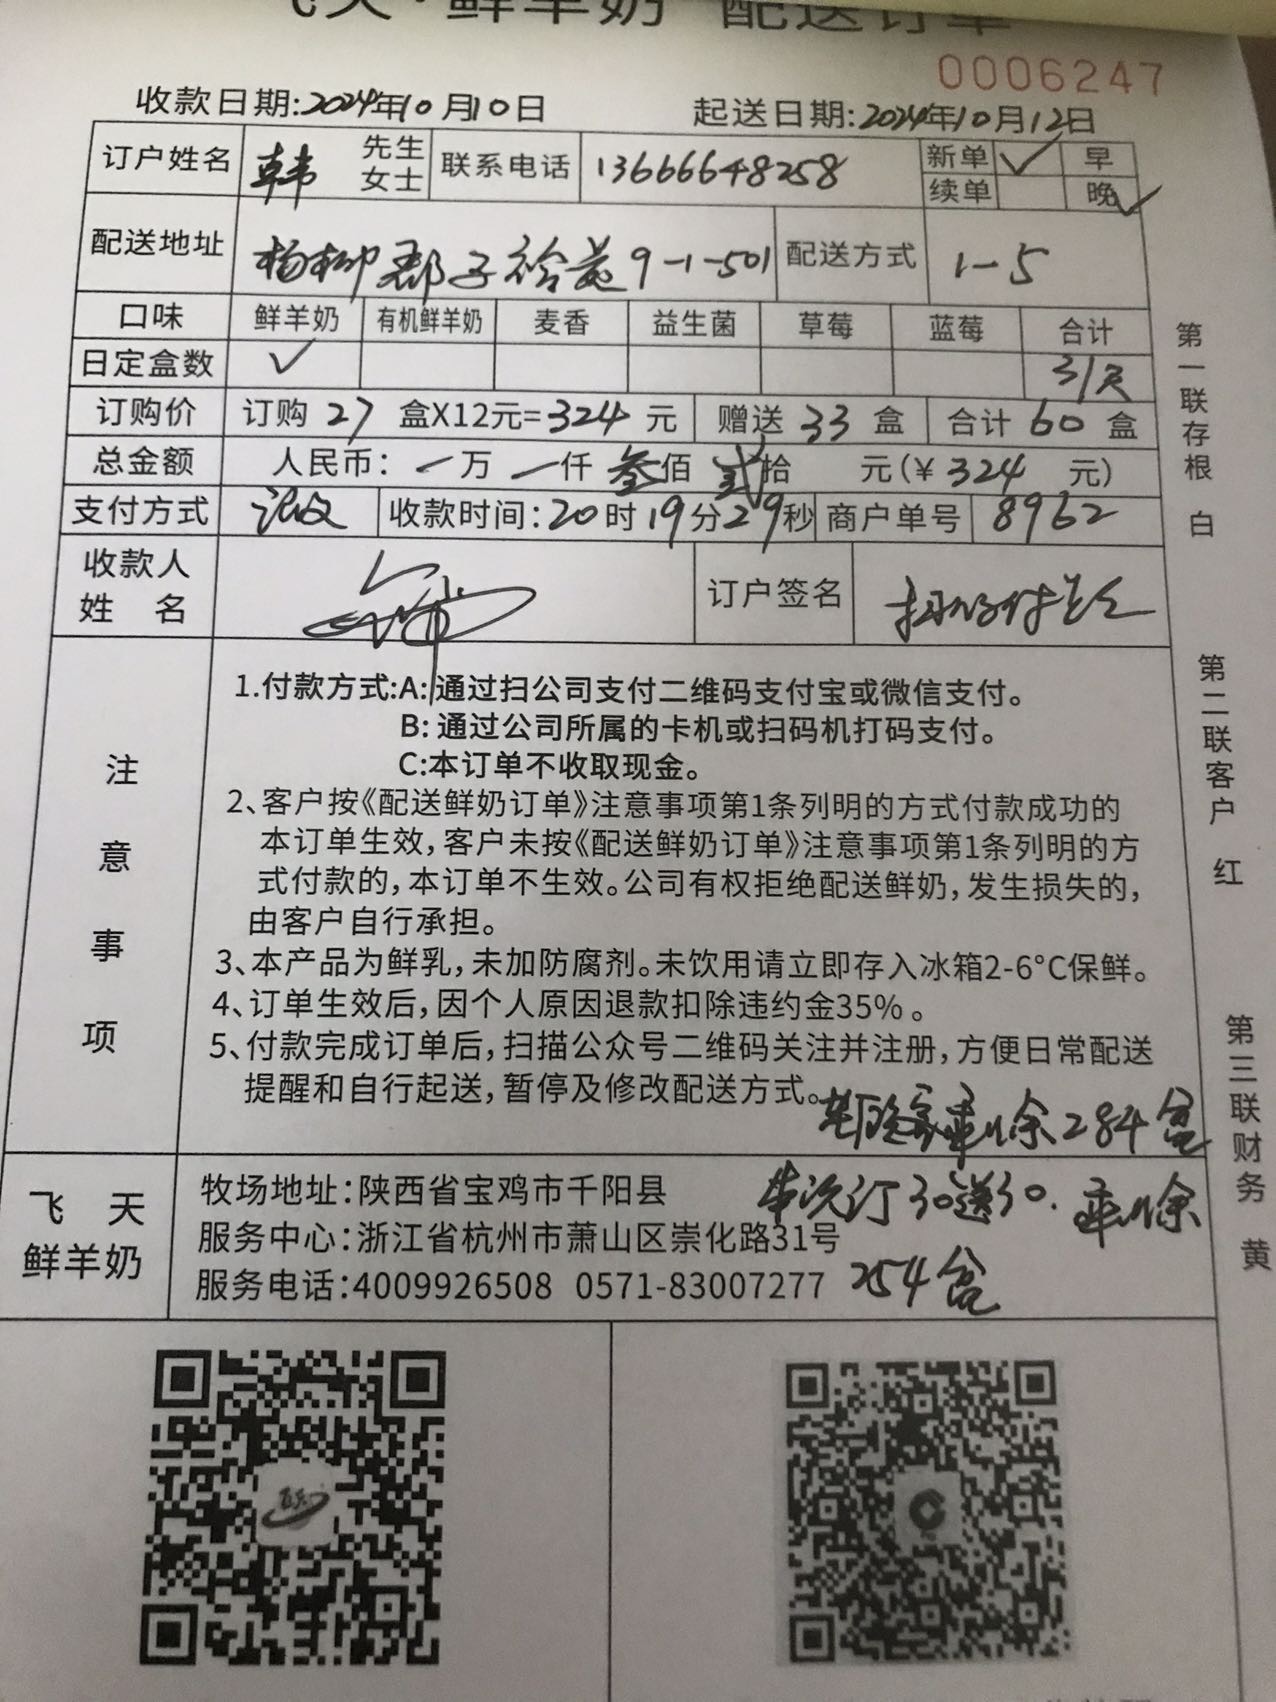 飞天·鲜羊奶 配送订单
0006247
收款日期:2024年10月10日 起送日期:2024年10月12日
订户姓名 韩 先生 女士 联系电话 13666648258 新单 ✓ 早
续单 晚 ✓
配送地址 杨柳郡子 9-1-501 配送方式 1-5
口味 鲜羊奶 有机鲜羊奶 麦香 益生菌 草莓 蓝莓 合计
日定盒数 ✓ 31天
订购价 订购 27 盒X12元=324 元 赠送 33 盒 合计 60 盒
总金额 人民币: 一万 一仟 叁佰 贰拾 元(¥ 324 元)
支付方式 收款时间:20时19分29秒 商户单号 8962
收款人
姓 名 订户签名
注意事项
1.付款方式:A:通过扫公司支付二维码支付宝或微信支付。
B:通过公司所属的卡机或扫码机打码支付。
C:本订单不收取现金。
2、客户按《配送鲜奶订单》注意事项第1条列明的方式付款成功的
本订单生效,客户未按《配送鲜奶订单》注意事项第1条列明的方
式付款的,本订单不生效。公司有权拒绝配送鲜奶,发生损失的,
由客户自行承担。
3、本产品为鲜乳,未加防腐剂。未饮用请立即存入冰箱2-6°C保鲜。
4、订单生效后,因个人原因退款扣除违约金35%。
5、付款完成订单后,扫描公众号二维码关注并注册,方便日常配送
提醒和自行起送,暂停及修改配送方式。
剩余284盒
本次订30送30. 剩余
254盒
飞 天
鲜羊奶
牧场地址:陕西省宝鸡市千阳县
服务中心:浙江省杭州市萧山区崇化路31号
服务电话:4009926508 0571-83007277
第一联存根 白
第二联客户 红
第三联财务 黄